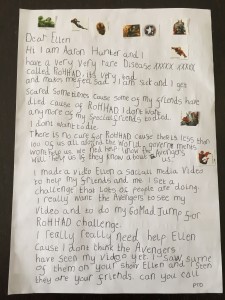 Dear Ellen
Hi I am Aaron Hunter and I
have a very very rare Disease xxxx xxxx
called ROHHAD, its very bad
and makes me feel sad I am sick and I get
Scared Sometimes cause some of my friends have
died cause of ROHHAD I dont want
any more of my Special friends to die.
I dont want to die
There is no cure for ROHHAD cause theres less than
100 of us all around the World, governments
wont help us yet but I know the Avengers
will help us if they know about us.
I made a video Ellen a Social media Video
to help my friends and me I set a
challenge that lots of people are doing
I really want the Avengers to see my
Video and to do my GoMad Jump for
ROHHAD challenge.
I really really need help Ellen
Cause I dont think the Avengers
have seen my video yet. I saw some
of them on your Show Ellen and I seen
they are your friends. can you call
PTO